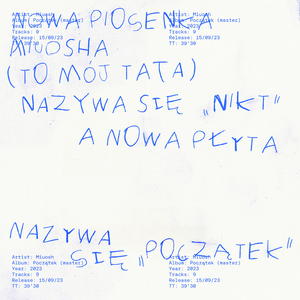 Artist: Miuosh
Album: Początek (master)
Year: 2023
Tracks: 9
Release: 15/09/23
TT: 39'30
Artist: Miuosh
Album: Początek (master)
Year: 2023
Tracks: 9
Release: 15/09/23
TT: 39'30
NOWA PIOSENKA
MIUOSHA
(TO MÓJ TATA)
NAZYWA SIĘ „NIKT"
A NOWA PŁYTA
NAZYWA
SIĘ „POCZĄTEK"
Artist: Miuosh
Album: Początek (master)
Year: 2023
Tracks: 9
Release: 15/09/23
TT: 39'30
Artist: Miuosh
Album: Początek (master)
Year: 2023
Tracks: 9
Release: 15/09/23
TT: 39'30